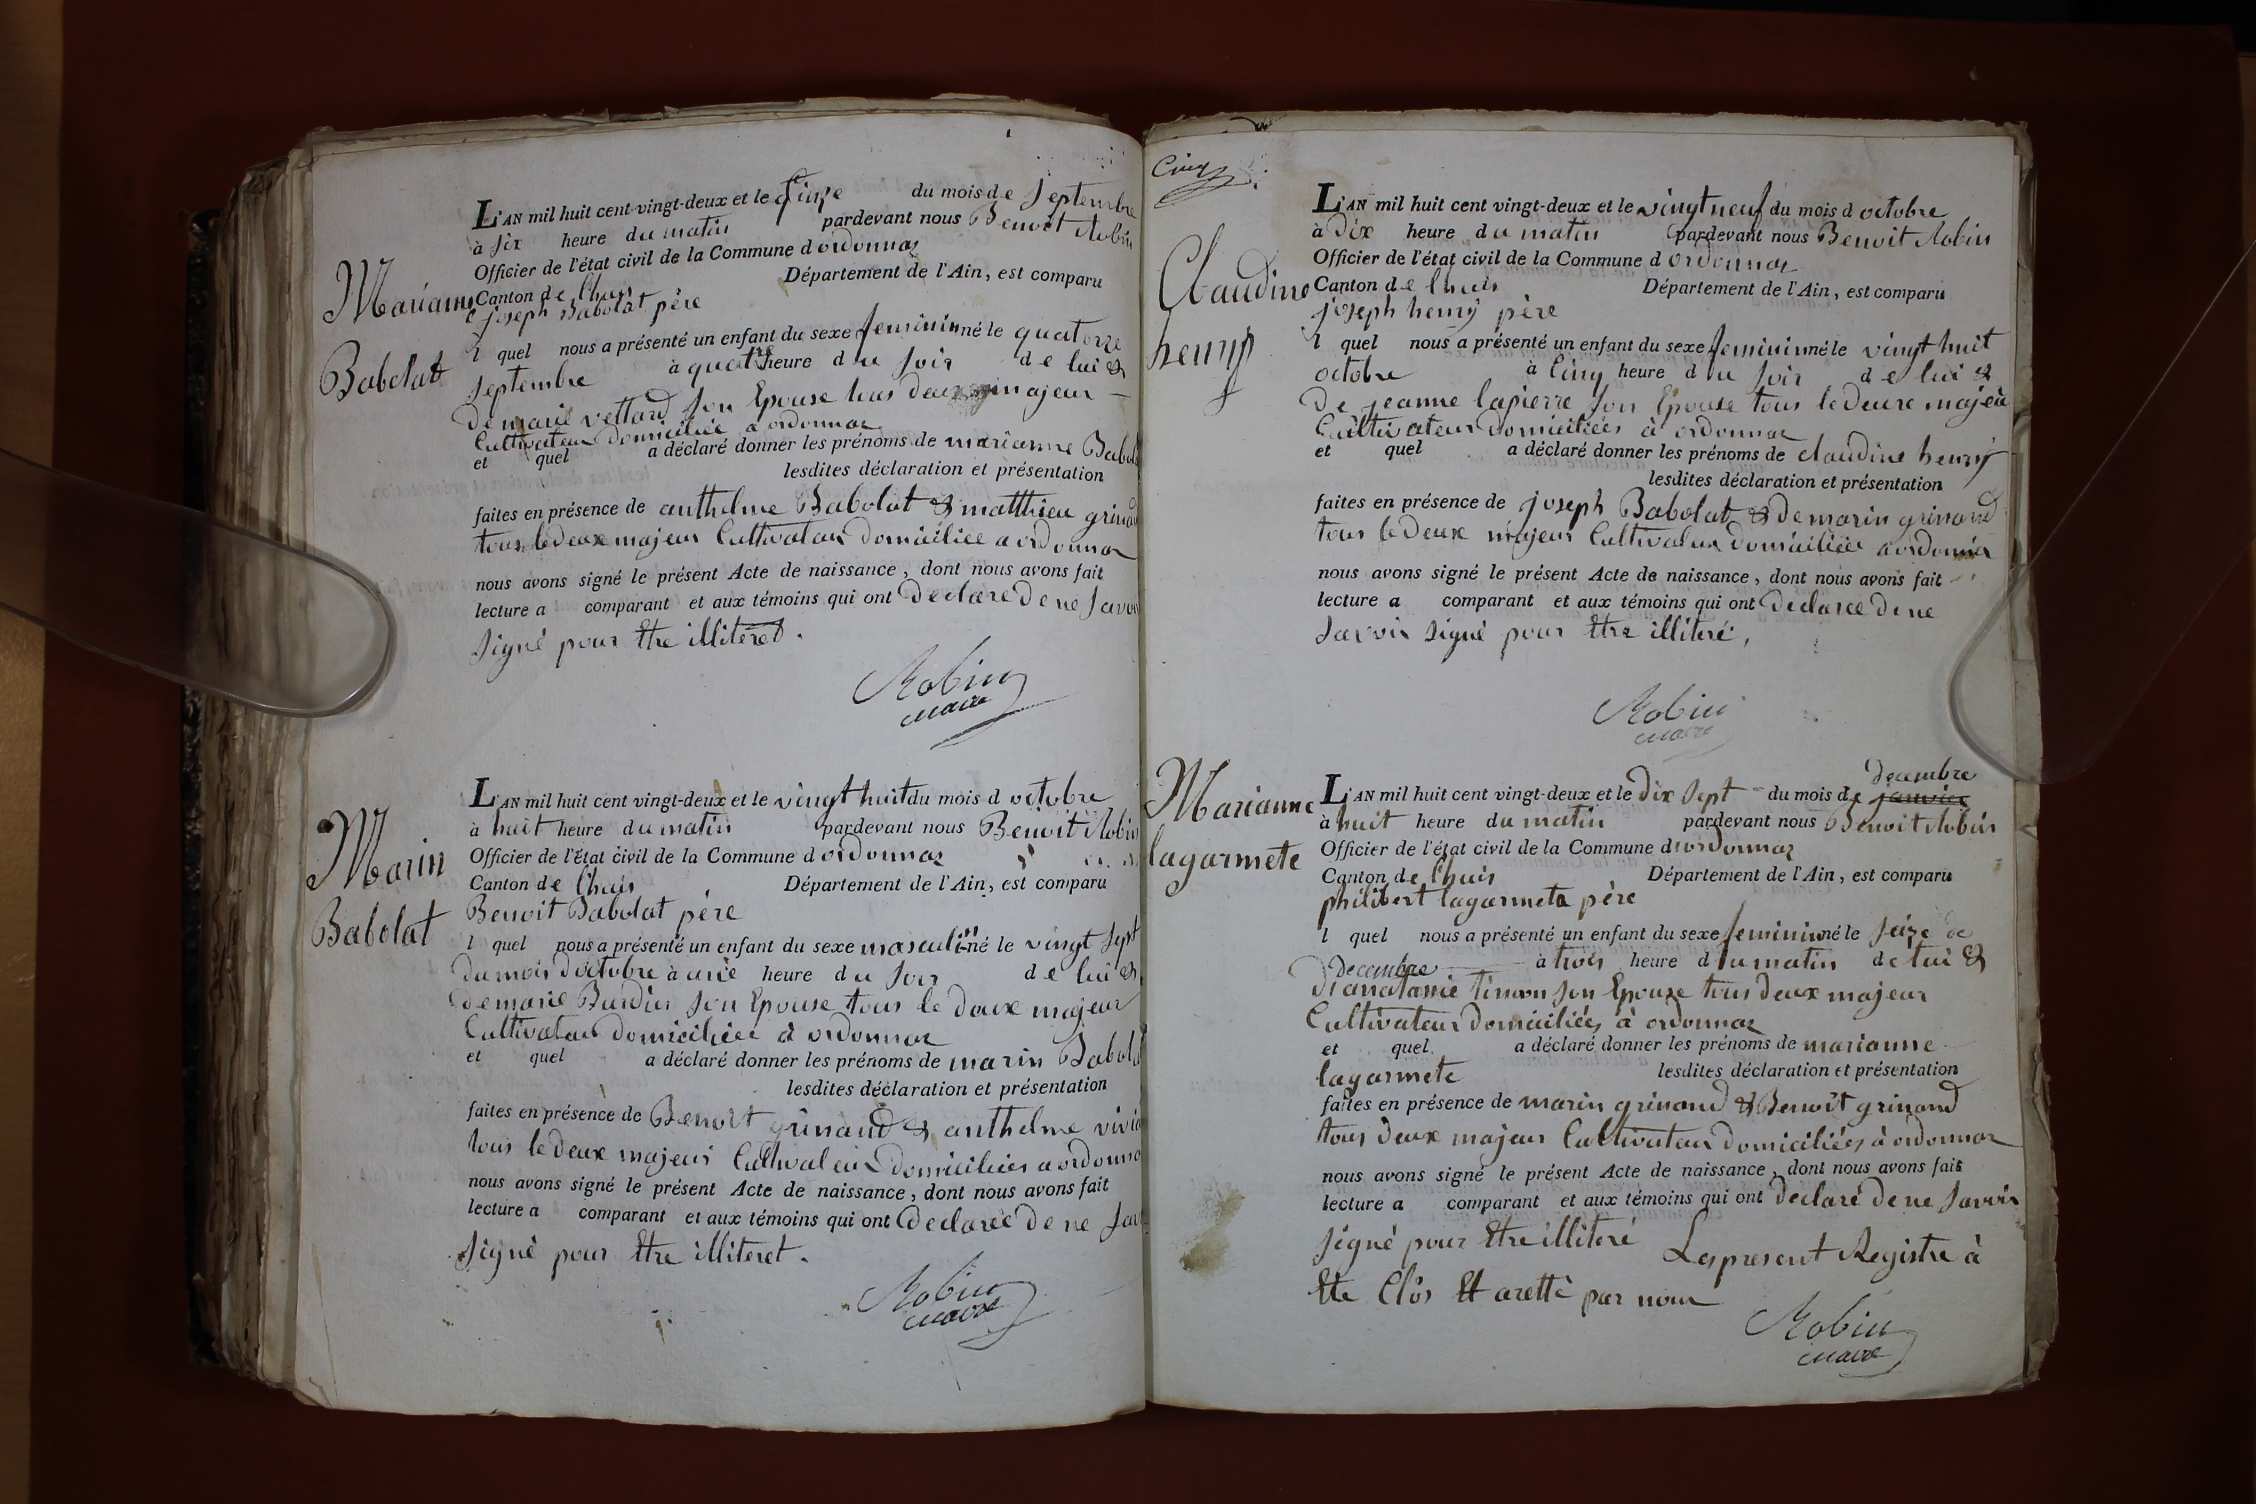 L'AN mil huit cent vingt-deux et le quinze du mois de Septembre
à Six heure du matin pardevant nous Benoit Robin
Officier de l'état civil de la Commune d ordonnaz
Canton de Lhuis Département de l'Ain, est comparu
Marianne
Babolat
joseph Babolat père
l quel nous a présenté un enfant du sexe feminin né le quatorze
Septembre à quatre heure du Soir de lui &
de marie vettard Son Epouse tous deux majeur
Cultivateur domiciliée a ordonnaz
et quel a déclaré donner les prénoms de marianne Babol
lesdites déclaration et présentation
faites en présence de anthelme Babolat & matthieu grinan
tous le deux majeur Cultivateur domiciliée a ordonnaz
nous avons signé le présent Acte de naissance, dont nous avons fait
lecture a comparant et aux témoins qui ont declaré de ne Savoi
Signé pour Etre illiteret.
Robin
maire
L'AN mil huit cent vingt-deux et le vingt huit du mois d octobre
à huit heure du matin pardevant nous Benoit Robin
Officier de l'état civil de la Commune d ordonnaz
Canton de Lhuis Département de l'Ain, est comparu
Marin
Babolat
Benoit Babolat père
l quel nous a présenté un enfant du sexe masculin né le vingt Sept
du mois doctobre à heure du Soir de lui &
de marie Burdin Son Epouse tous le deux majeur
Cultivateur domiciliée à ordonnaz
et quel a déclaré donner les prénoms de marin Babola
lesdites déclaration et présentation
faites en présence de Benoit grinand & anthelme vivia
tous le deux majeur Cultivateur domiciliées a ordonna
nous avons signé le présent Acte de naissance, dont nous avons fait
lecture a comparant et aux témoins qui ont declarée de ne Sav
Signé pour Etre illiteret.
Robin
maire
Cinq
L'AN mil huit cent vingt-deux et le vingt neuf du mois d octobre
à Dix heure du matin pardevant nous Benoit Robin
Officier de l'état civil de la Commune d ordonnaz
Canton de Lhuis Département de l'Ain, est comparu
Claudine
henry
joseph henry père
l quel nous a présenté un enfant du sexe feminin né le vingt huit
octobre à Cinq heure du Soir de lui &
De jeanne lapierre Son Epouse tous le deux majeu
Cultivateur domiciliées à ordonnaz
et quel a déclaré donner les prénoms de claudine henry
lesdites déclaration et présentation
faites en présence de joseph Babolat & de marin grinand
tous le deux majeur Cultivateur domiciliée a ordonnaz
nous avons signé le présent Acte de naissance, dont nous avons fait
lecture a comparant et aux témoins qui ont declarée de ne
Savoir Signé pour Etre illiteré,
Robin
maire
L'AN mil huit cent vingt-deux et le dix Sept du mois de janvier decembre
à huit heure du matin pardevant nous Benoit Robin
Officier de l'état civil de la Commune d ordonnaz
Canton de Lhuis Département de l'Ain, est comparu
Marianne
lagarmete
philibert lagarmete père
l quel nous a présenté un enfant du sexe feminin né le Seize de
decembre à trois heure du matin de lui &
Son Epouse tous deux majeur
Cultivateur domiciliées à ordonnaz
et quel a déclaré donner les prénoms de marianne
lagarmete lesdites déclaration et présentation
faites en présence de marin grinand & Benoit grinand
tous deux majeur Cultivateur domiciliées à ordonnaz
nous avons signé le présent Acte de naissance, dont nous avons fait
lecture a comparant et aux témoins qui ont declaré de ne Savoir
Signé pour Etre illiteré Le present Registre à
Ete Clos Et aretté par nous
Robin
maire